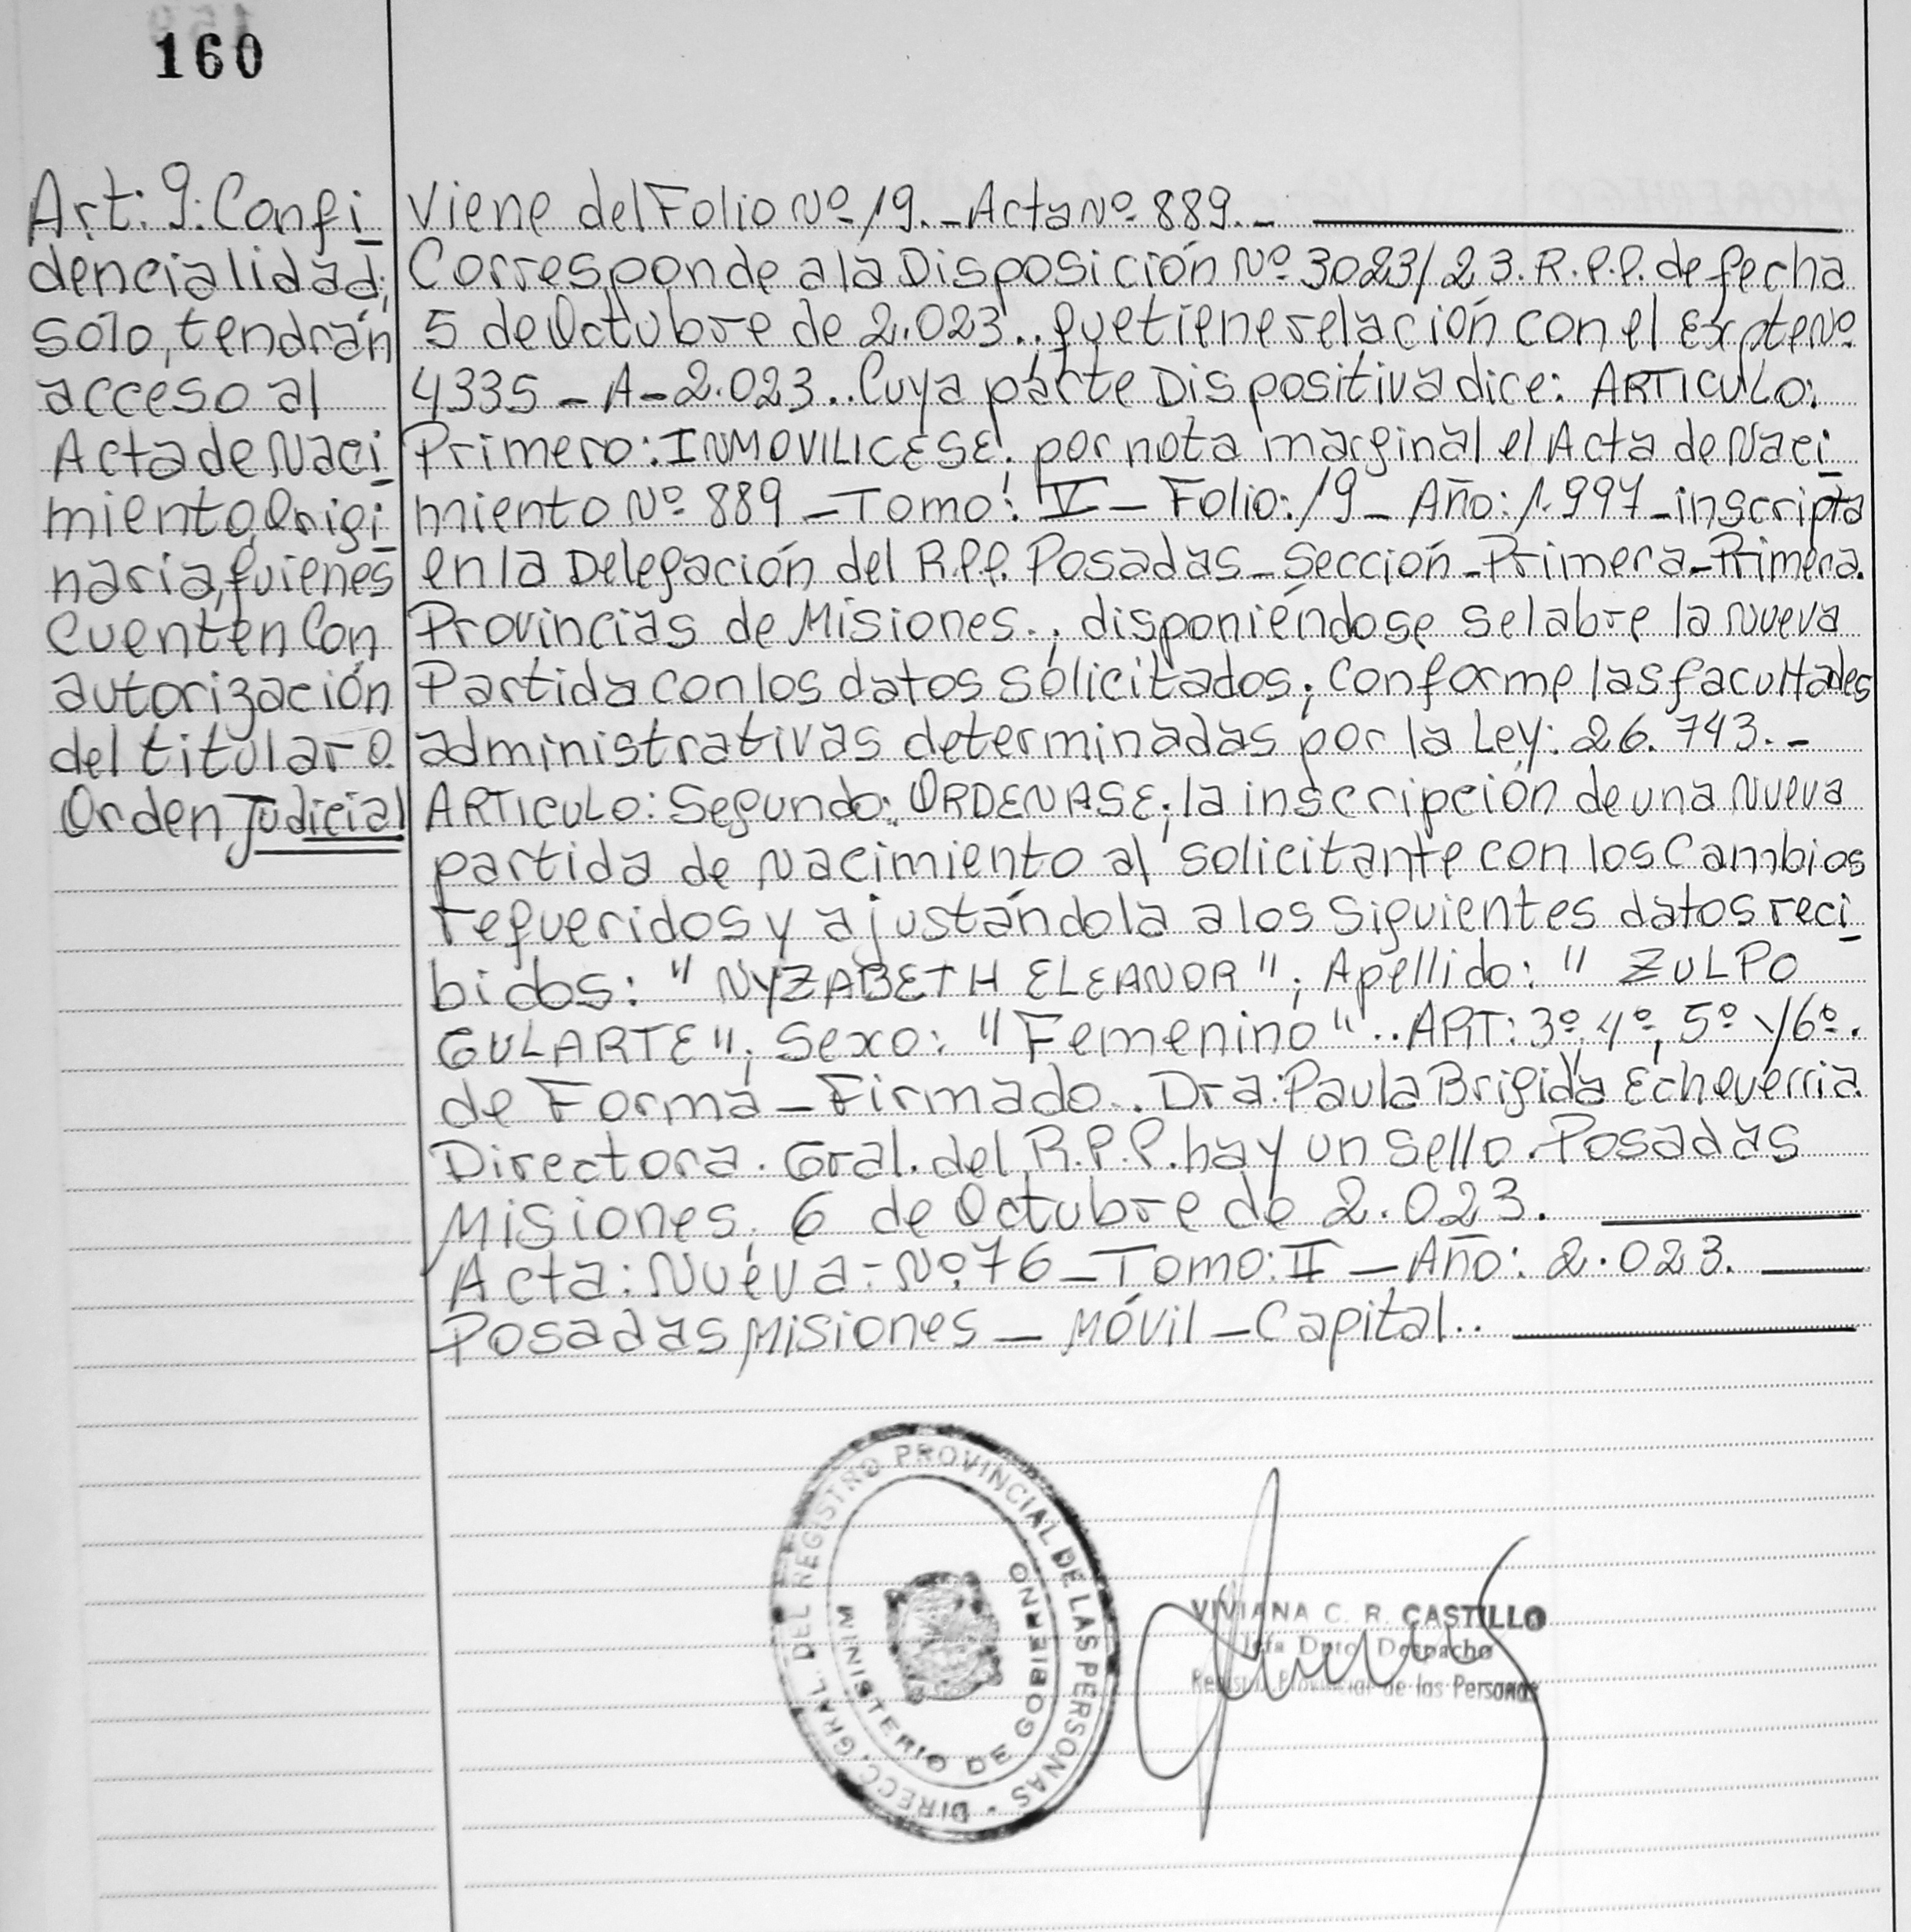 160
Art: 9: Confi
dencialidad;
sólo, tendrán
acceso al
Acta de Naci
miento, Origi
naria, quienes
Cuenten Con
autorización
del titular o
Orden Judicial
Viene del Folio Nº 19.-Acta Nº 889.-
Corresponde a la Disposición Nº 3023/23. R.P.P. de fecha
5 de Octubre de 2.023.., que tiene relación con el Expte Nº
4335-A-2.023.. Cuya parte Dispositiva dice: ARTICULO:
Primero: INMOVILICESE; por nota marginal el Acta de Naci
miento Nº 889 - Tomo: V - Folio: 19 - Año: 1.997 - inscripta
en la Delegación del R.P.P. Posadas - Sección - Primera - Primera.
Provincias de Misiones., disponiéndose se labre la Nueva
Partida con los datos solicitados; Conforme las facultades
administrativas determinadas por la Ley: 26.743.-
ARTICULO: Segundo: ORDENASE; la inscripción de una Nueva
partida de Nacimiento al solicitante con los Cambios
requeridos y ajustándola a los Siguientes datos reci
bidos: "NYZABETH ELEANOR"; Apellido: " ZULPO
GULARTE"; Sexo: "Femenino".. ART: 3º, 4º, 5º y 6º.
de Forma - Firmado.. Dra: Paula Brigida Echeverria.
Directora. Gral. del R.P.P. hay un Sello. Posadas
Misiones; 6 de Octubre de 2.023.
Acta: Nueva: Nº 76 - Tomo: II - Año: 2.023.
Posadas Misiones - Móvil - Capital..
DIRECC. GRAL. DEL REGISTRO PROVINCIAL DE LAS PERSONAS
MINISTERIO DE GOBIERNO
VIVIANA C. R. CASTILLO
Jefa Dpto Despacho
Registro Provincial de las Personas